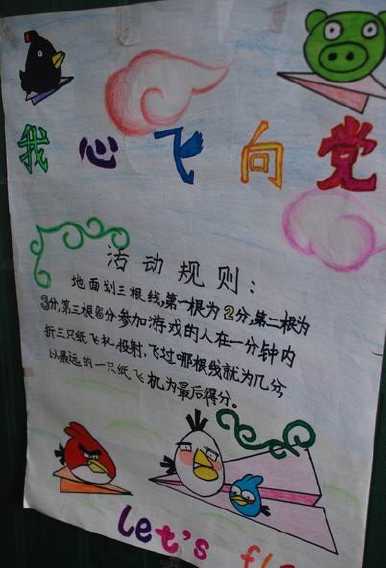 我心飞向党
活动规则：
地面划三根线,第一根为2分,第二根为
3分,第三根6分参加游戏的人在一分钟内
折三只纸飞机投射,飞过哪根线就为几分
以最远的一只纸飞机为最后得分。
Let's